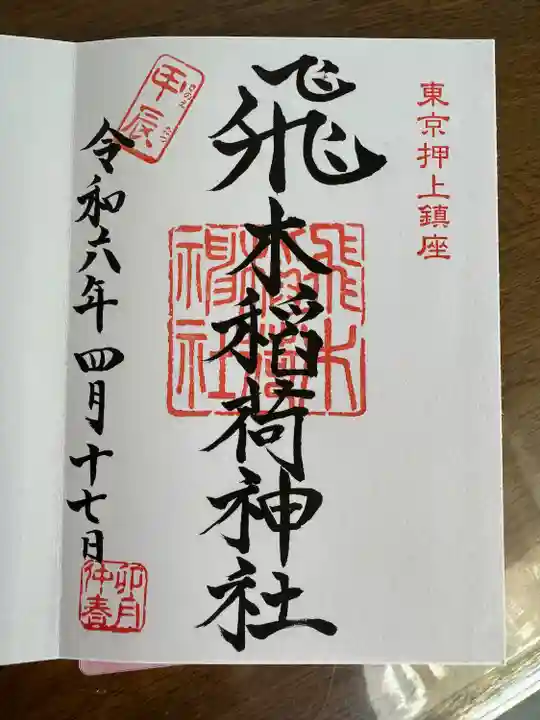 東京押上鎮座
飛木稲荷神社
飛木稲荷神社
甲辰
きのえ たつ
令和六年四月十七日
卯月
仲春